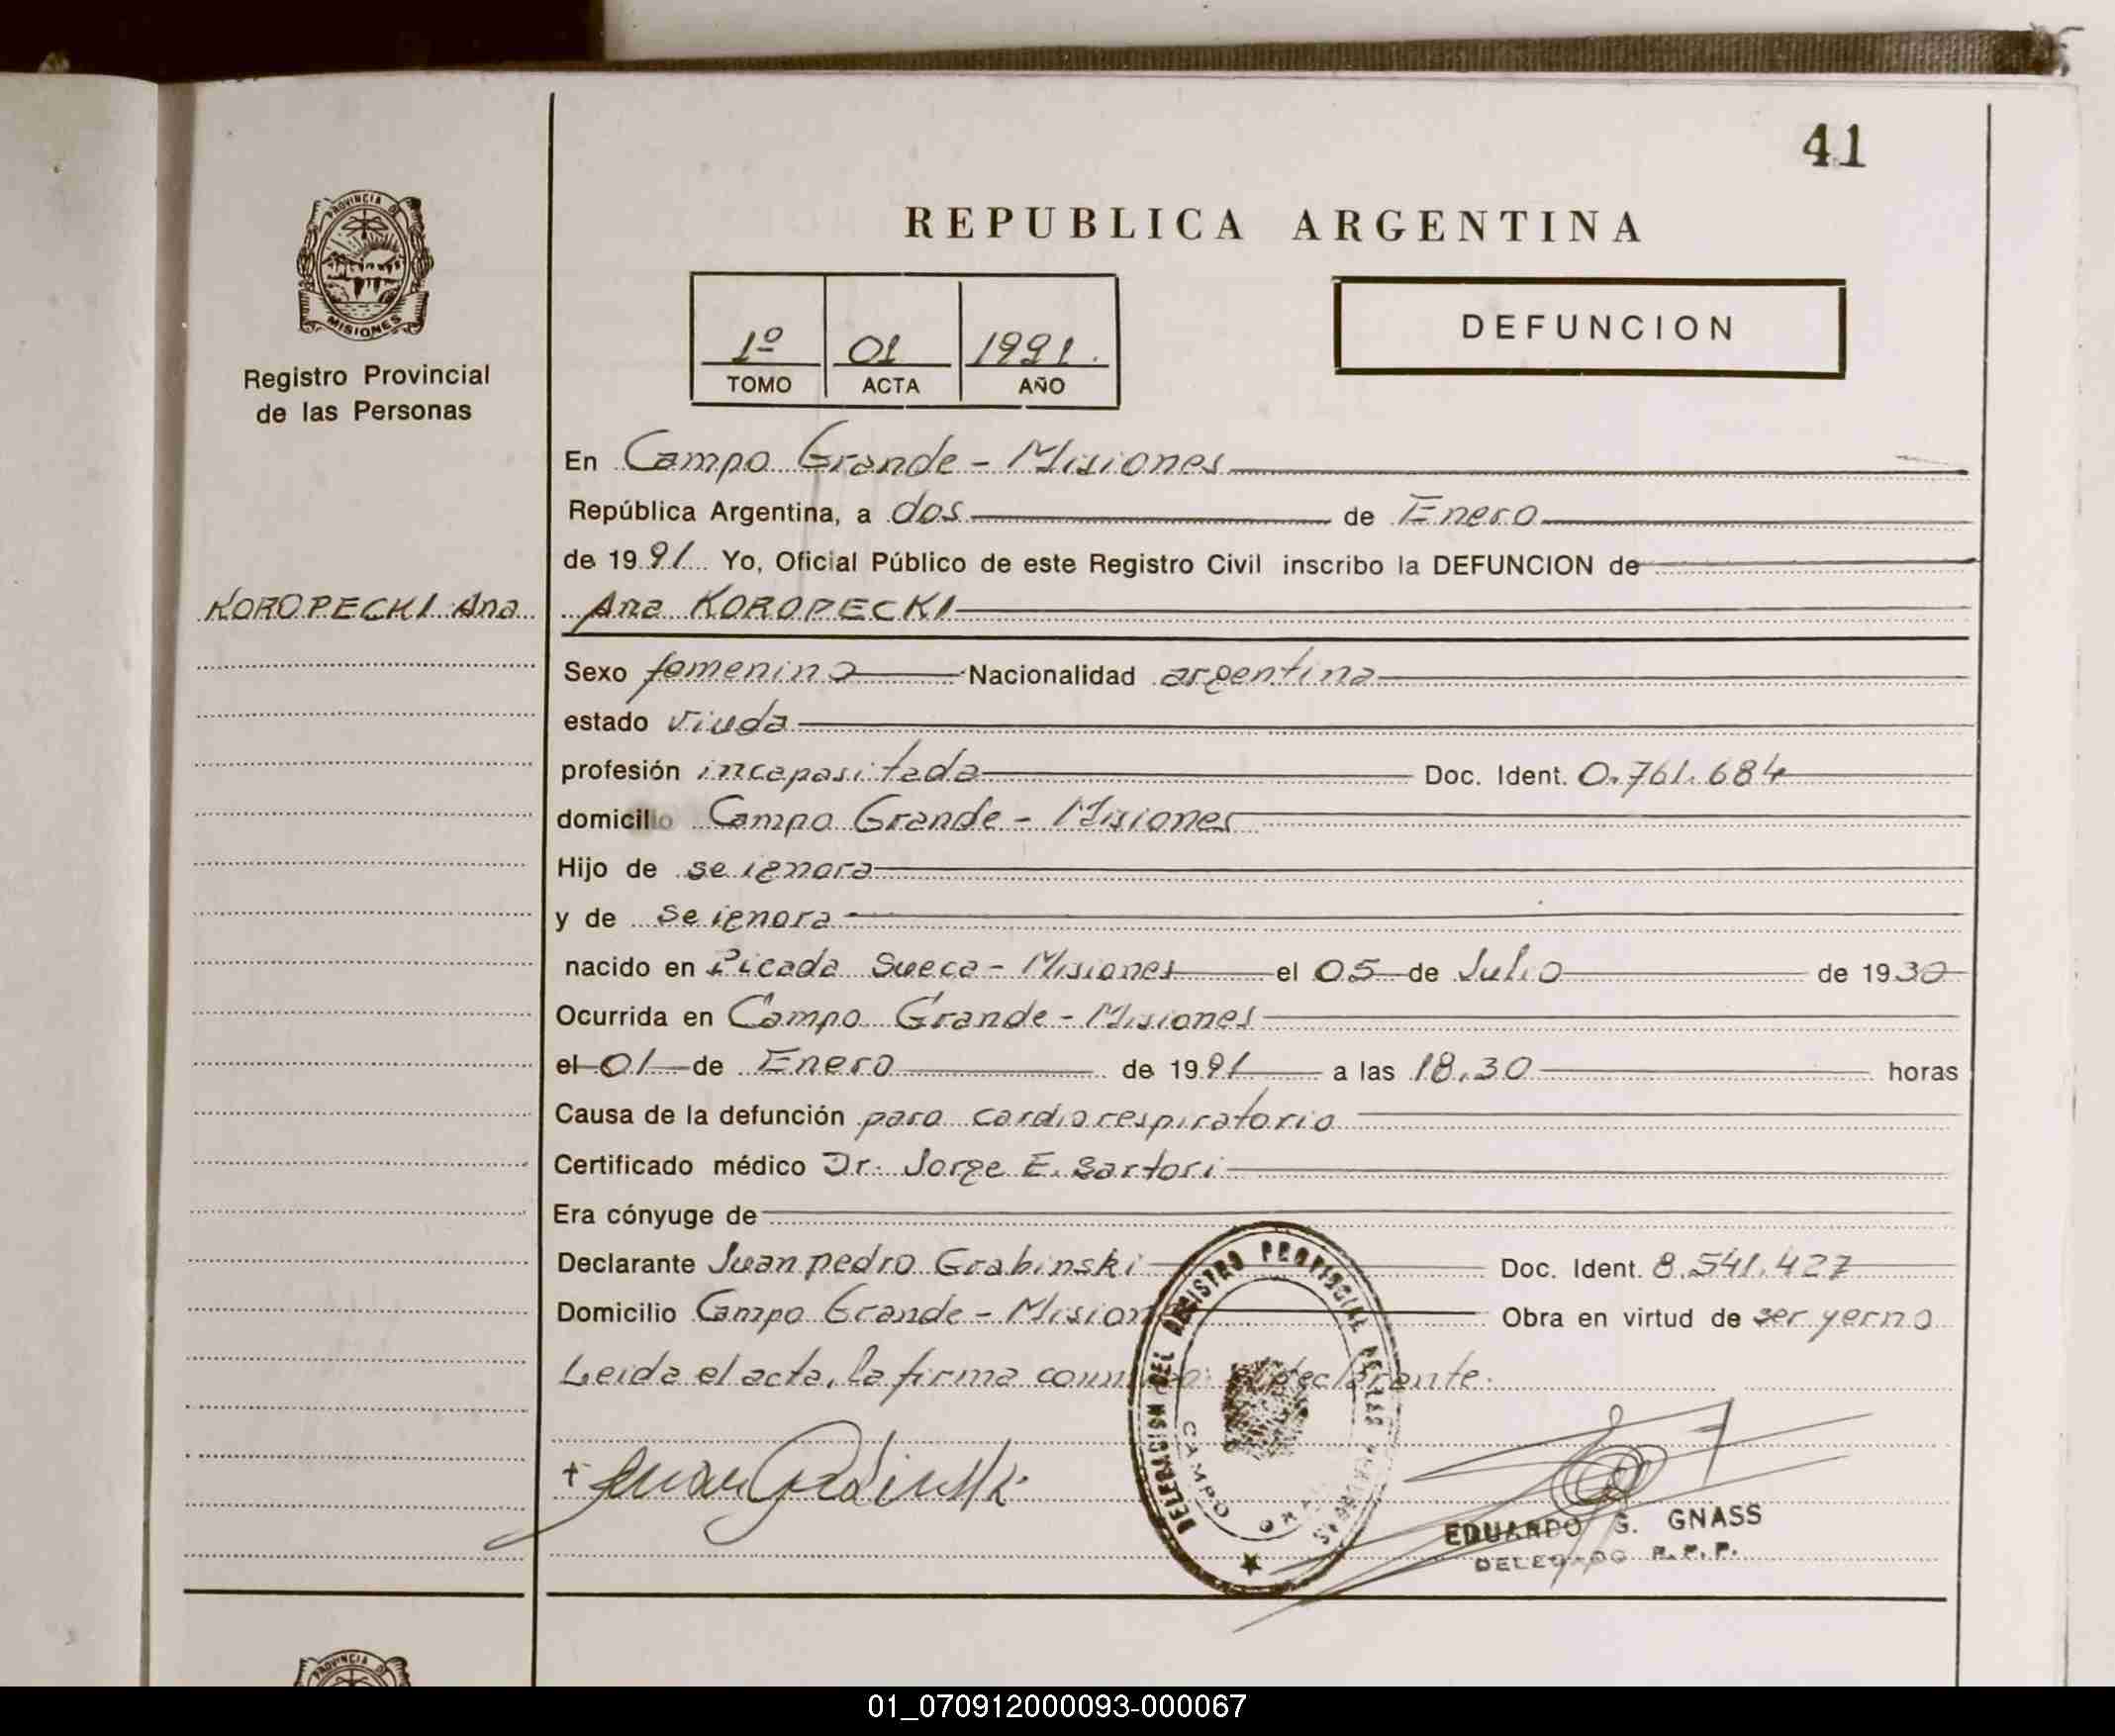 41
PROVINCIA DE
MISIONES
Registro Provincial
de las Personas
REPUBLICA ARGENTINA
1º 01 1991.
TOMO ACTA AÑO
DEFUNCION
En Campo Grande - Misiones
República Argentina, a dos de Enero
de 1991 Yo, Oficial Público de este Registro Civil inscribo la DEFUNCION de
KOROPECKI Ana
Ana KOROPECKI
Sexo femenino Nacionalidad argentina
estado viuda
profesión incapasitada Doc. Ident. 0.761.684
domicilio Campo Grande - Misiones
Hijo de se ignora
y de se ignora
nacido en Picada Sueca - Misiones el 05 de Julio de 1930
Ocurrida en Campo Grande - Misiones
el 01 de Enero de 1991 a las 18.30 horas
Causa de la defunción paro cardiorespiratorio
Certificado médico Dr. Jorge E. Sartori
Era cónyuge de
Declarante Juan pedro Grabinski Doc. Ident. 8.541.427
Domicilio Campo Grande - Mision Obra en virtud de ser yerno
Leida el acta, la firma declarante.
DELEGACION DEL REGISTRO PROVINCIAL DE LAS PERSONAS
CAMPO GRANDE
EDUARDO G. GNASS
DELEGADO R.P.P.
PROVINCIA DE
01_070912000093-000067